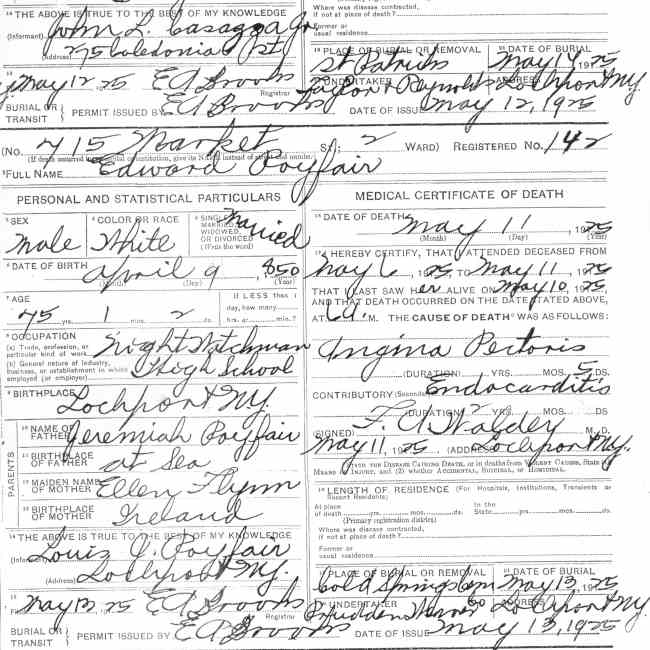 14 THE ABOVE IS TRUE TO THE BEST OF MY KNOWLEDGE
(Informant) John L. Casazza Jr.
(Address) 775 Caledonia St
15 May 12, 25 E A Brooks
Registrar
BURIAL OR TRANSIT } PERMIT ISSUED BY E A Brooks
Where was disease contracted,
if not at place of death?
Former or
usual residence
19 PLACE OF BURIAL OR REMOVAL DATE OF BURIAL
St Patricks May 14, 1925
UNDERTAKER ADDRESS
Taylor & Reynolds Lockport N.Y.
DATE OF ISSUE May 12, 1925
(No. 715 Market St; 2 WARD) REGISTERED No. 142
(If death occurred in hospital or institution, give its NAME instead of street and number.)
2 FULL NAME Edward Poyfair
PERSONAL AND STATISTICAL PARTICULARS
3 SEX Male
4 COLOR OR RACE White
5 SINGLE, MARRIED, WIDOWED, OR DIVORCED (Write the word) Married
6 DATE OF BIRTH April 9, 1850
(Month) (Day) (Year)
7 AGE
75 yrs. 1 mos. 2 ds.
If LESS than 1 day, how many hrs. or min.?
8 OCCUPATION
(a) Trade, profession, or particular kind of work Night Watchman
(b) General nature of industry, business, or establishment in which employed (or employer) High School
9 BIRTHPLACE Lockport N.Y.
PARENTS
10 NAME OF FATHER Jeremiah Poyfair
11 BIRTHPLACE OF FATHER at Sea
12 MAIDEN NAME OF MOTHER Ellen Flynn
13 BIRTHPLACE OF MOTHER Ireland
14 THE ABOVE IS TRUE TO THE BEST OF MY KNOWLEDGE
(Informant) Louis J. Poyfair
(Address) Lockport N.Y.
15 May 13, 25 E A Brooks
Registrar
BURIAL OR TRANSIT } PERMIT ISSUED BY E A Brooks
MEDICAL CERTIFICATE OF DEATH
16 DATE OF DEATH May 11, 1925
(Month) (Day) (Year)
17 I HEREBY CERTIFY, THAT I ATTENDED DECEASED FROM
May 6, 1925, TO May 11, 1925
THAT I LAST SAW her ALIVE ON May 10, 1925
AND THAT DEATH OCCURRED ON THE DATE STATED ABOVE,
AT 6 a. M. THE CAUSE OF DEATH WAS AS FOLLOWS:
Angina Pectoris
(DURATION) YRS. MOS. 5 DS.
CONTRIBUTORY (Secondary) Endocarditis
(DURATION) 2 YRS. MOS. DS
(SIGNED) F. A. Waldey M. D.
May 11, 1925 (ADDRESS) Lockport N.Y.
STATE THE DISEASE CAUSING DEATH, or in deaths from VIOLENT CAUSES, State (1) MEANS OF INJURY, and (2) whether ACCIDENTAL, SUICIDAL, or HOMICIDAL.
18 LENGTH OF RESIDENCE (For Hospitals, Institutions, Transients or Recent Residents)
At place of death yrs. mos. ds. In the State yrs. mos. ds.
(Primary registration district)
Where was disease contracted,
if not at place of death?
Former or
usual residence
19 PLACE OF BURIAL OR REMOVAL DATE OF BURIAL
Cold Springs Cem May 13, 1925
UNDERTAKER ADDRESS
Prudden Co Lockport N.Y.
DATE OF ISSUE May 13, 1925